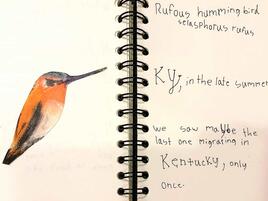 Rufous hummingbird
selasphorus rufus
KY, in the late summer
we saw maybe the
last one migrating in
Kentucky, only
once.